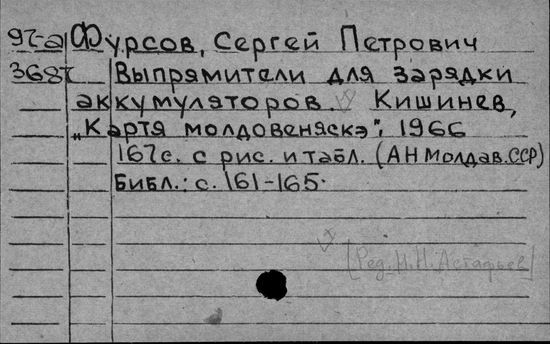 97-а Фурсов, Сергей Петрович
Выпрямители для зарядки
аккумуляторов. Кишинев,
„Картя молдовеняскэ", 1966
167с. с рис. и табл. (АН Молдав.ССР)
Библ.: с. 161-165.
[Ред. Н.Н. Астафьев]